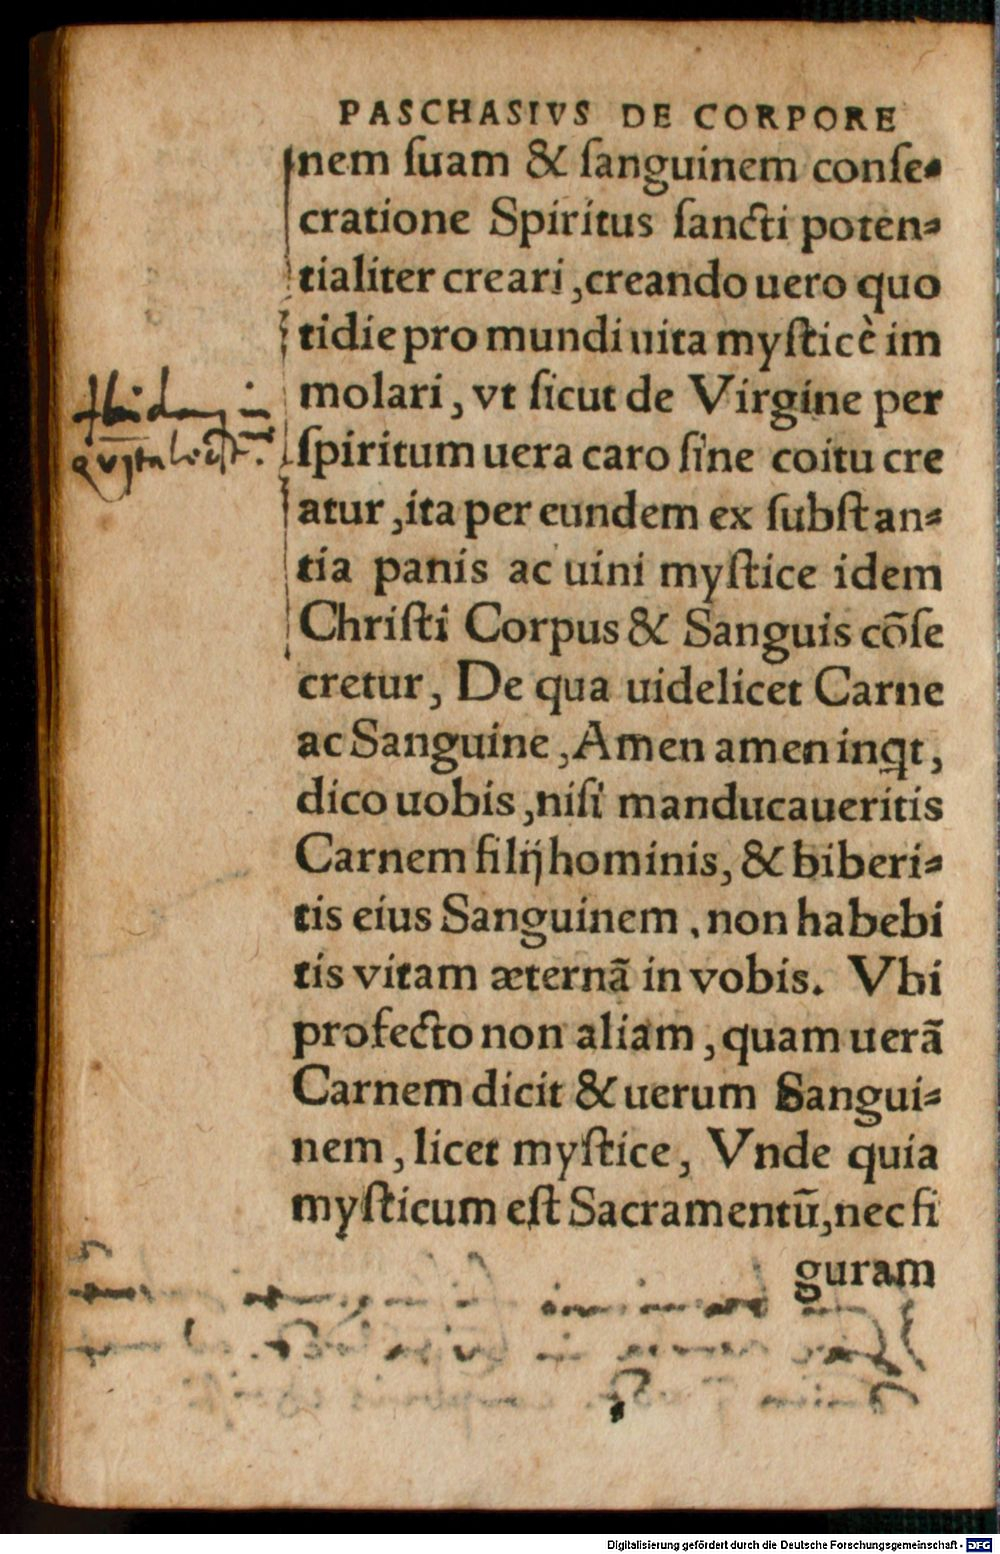 PASCHASIVS DE CORPORE
nem ſuam & ſanguinem conſe⸗
cratione Spiritus ſancti poten⸗
tialiter creari, creando uero quo
tidie pro mundi uita myſticè im
molari, vt ſicut de Virgine per
ſpiritum uera caro ſine coitu cre
atur, ita per eundem ex ſubſtan⸗
tia panis ac uini myſtice idem
Chriſti Corpus & Sanguis cõſe
cretur, De qua uidelicet Carne
ac Sanguine, Amen amen inqt,
dico uobis, niſi manducaueritis
Carnem filij hominis, & biberi⸗
tis eius Sanguinem, non habebi
tis vitam æternã in vobis. Vbi
profecto non aliam, quam uerã
Carnem dicit & uerum Sangui⸗
nem, licet myſtice, Vnde quia
myſticum eſt Sacramentũ, nec fi
guram
Digitalisierung gefördert durch die Deutsche Forschungsgemeinschaft - DFG